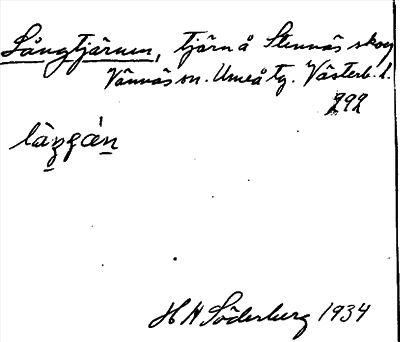 Långtjärnen, tjärn å Stennäs skog
Vännäs sn. Umeå tg. Västerb. l.
292
H H Söderberg 1934